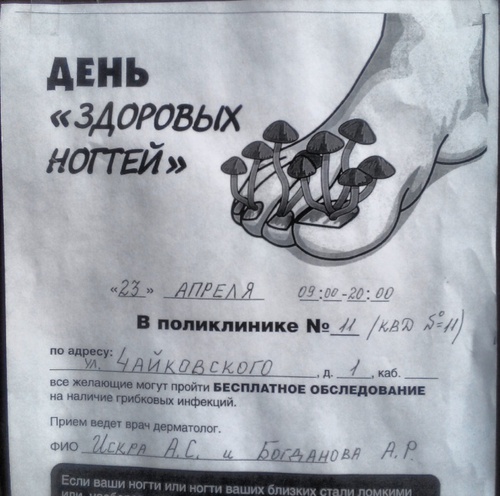 ДЕНЬ
«ЗДОРОВЫХ
НОГТЕЙ»
«23» АПРЕЛЯ 09:00-20:00
В поликлинике № 11 /КВД №11)
по адресу:
ул. ЧАЙКОВСКОГО, д. 1, каб.
все желающие могут пройти БЕСПЛАТНОЕ ОБСЛЕДОВАНИЕ
на наличие грибковых инфекций.
Прием ведет врач дерматолог.
ФИО ИСКРА А.С. и БОГДАНОВА А.Р.
Если ваши ногти или ногти ваших близких стали ломкими
или